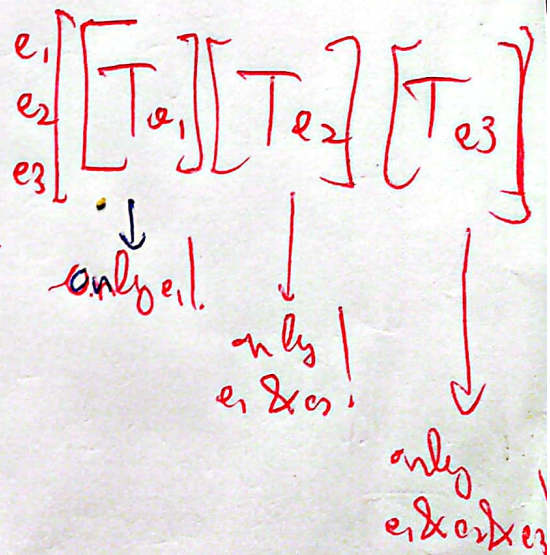 e1 [[Te1] [Te2] [Te3]]
e2
e3
only e1!
only
e1 & e2!
only
e1 & e2 & e3!